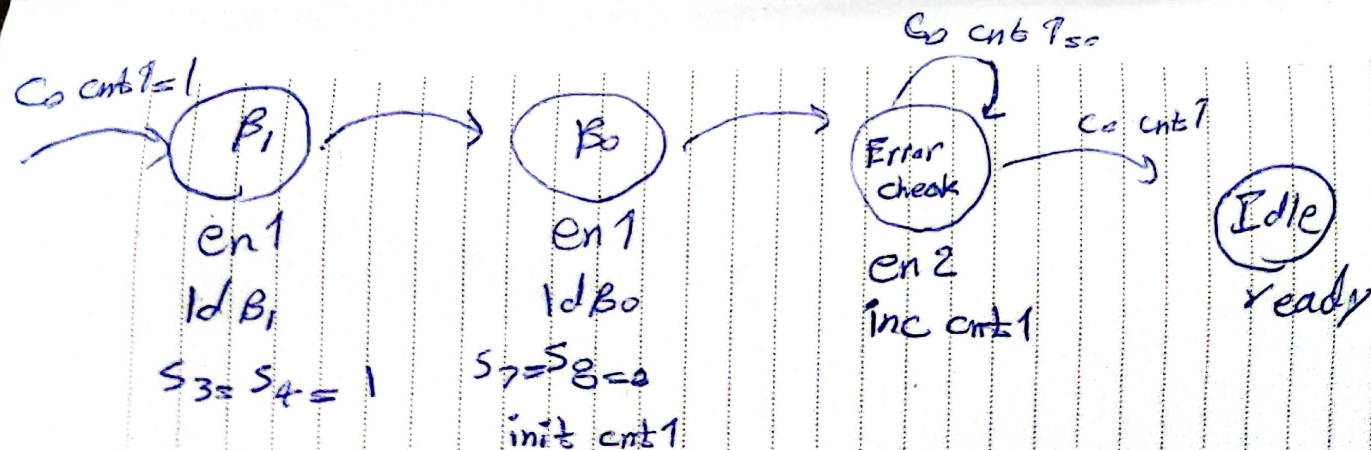 Co cnt1=1
β1
en1
ld β1
S3=S4=1
β0
en1
ld β0
S7=S8=0
init cnt1
Co cnt1=0
Error
check
en2
inc cnt1
Co cnt1
Idle
ready